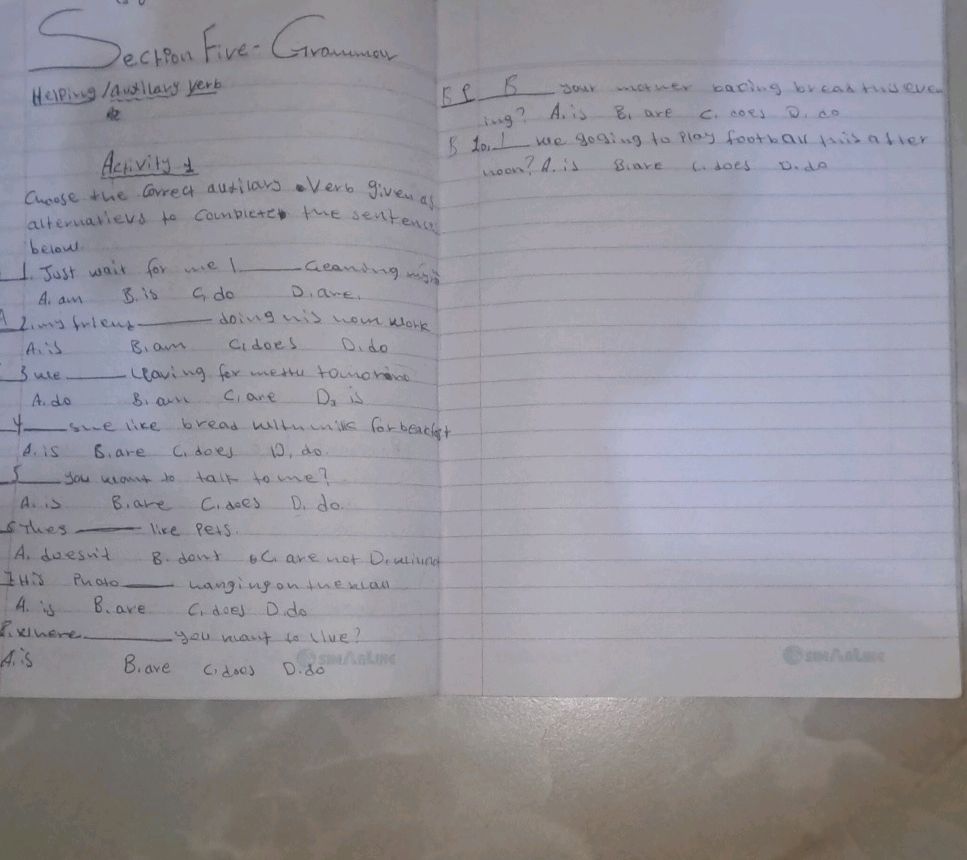 Section Five - Grammar
Helping /auxilary verb
Activity 1
Choose the correct auxilary verb given as
alternatievs to complete the sentence
below.
1. Just wait for me I _____ cleaning
A. am B. is C. do D. are.
A 2. my friend _____ doing his hom work
A. is B. am C. does D. do
3 we _____ leaving for mettu tomorrow
A. do B. am C. are D. is
4 _____ she like bread with milk for
A. is B. are C. does D. do.
5 _____ you want to talk to me?
A. is B. are C. does D. do.
6 They _____ like Pets.
A. doesn't B. dont C. are not D.
7 His Photo _____ hanging on the wall
A. is B. are C. does D. do
8. where _____ you want to live?
A. is B. are C. does D. do
SINARLINE
B 9 B your mother bacing bread this even
ing? A. is B. are C. does D. do
B 10. I we goging to play football this after
noon? A. is B. are C. does D. do
SINARLINE